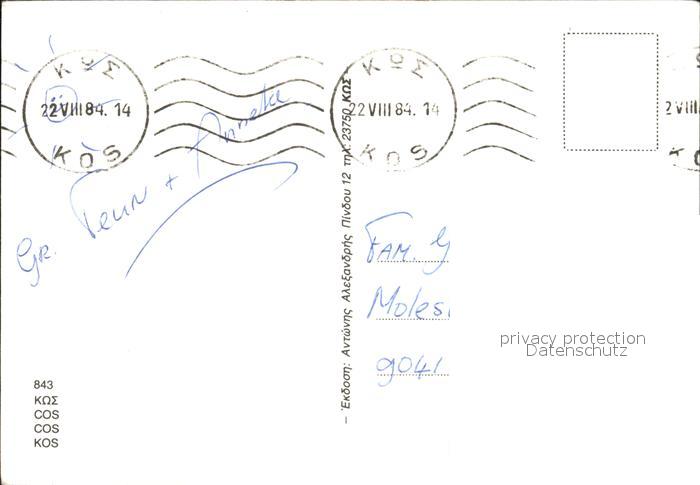 ΚΩΣ
22 VIII 84. 14
KOS
ΚΩΣ
22 VIII 84. 14
KOS
2 VIII
Gr. Teun + Anneke
FAM. G
Moles
9041
privacy protection
Datenschutz
– Ἔκδοση: Αντώνης Αλεξανδρής Πίνδου 12 τηλ. 23750 ΚΩΣ
843
ΚΩΣ
COS
COS
KOS